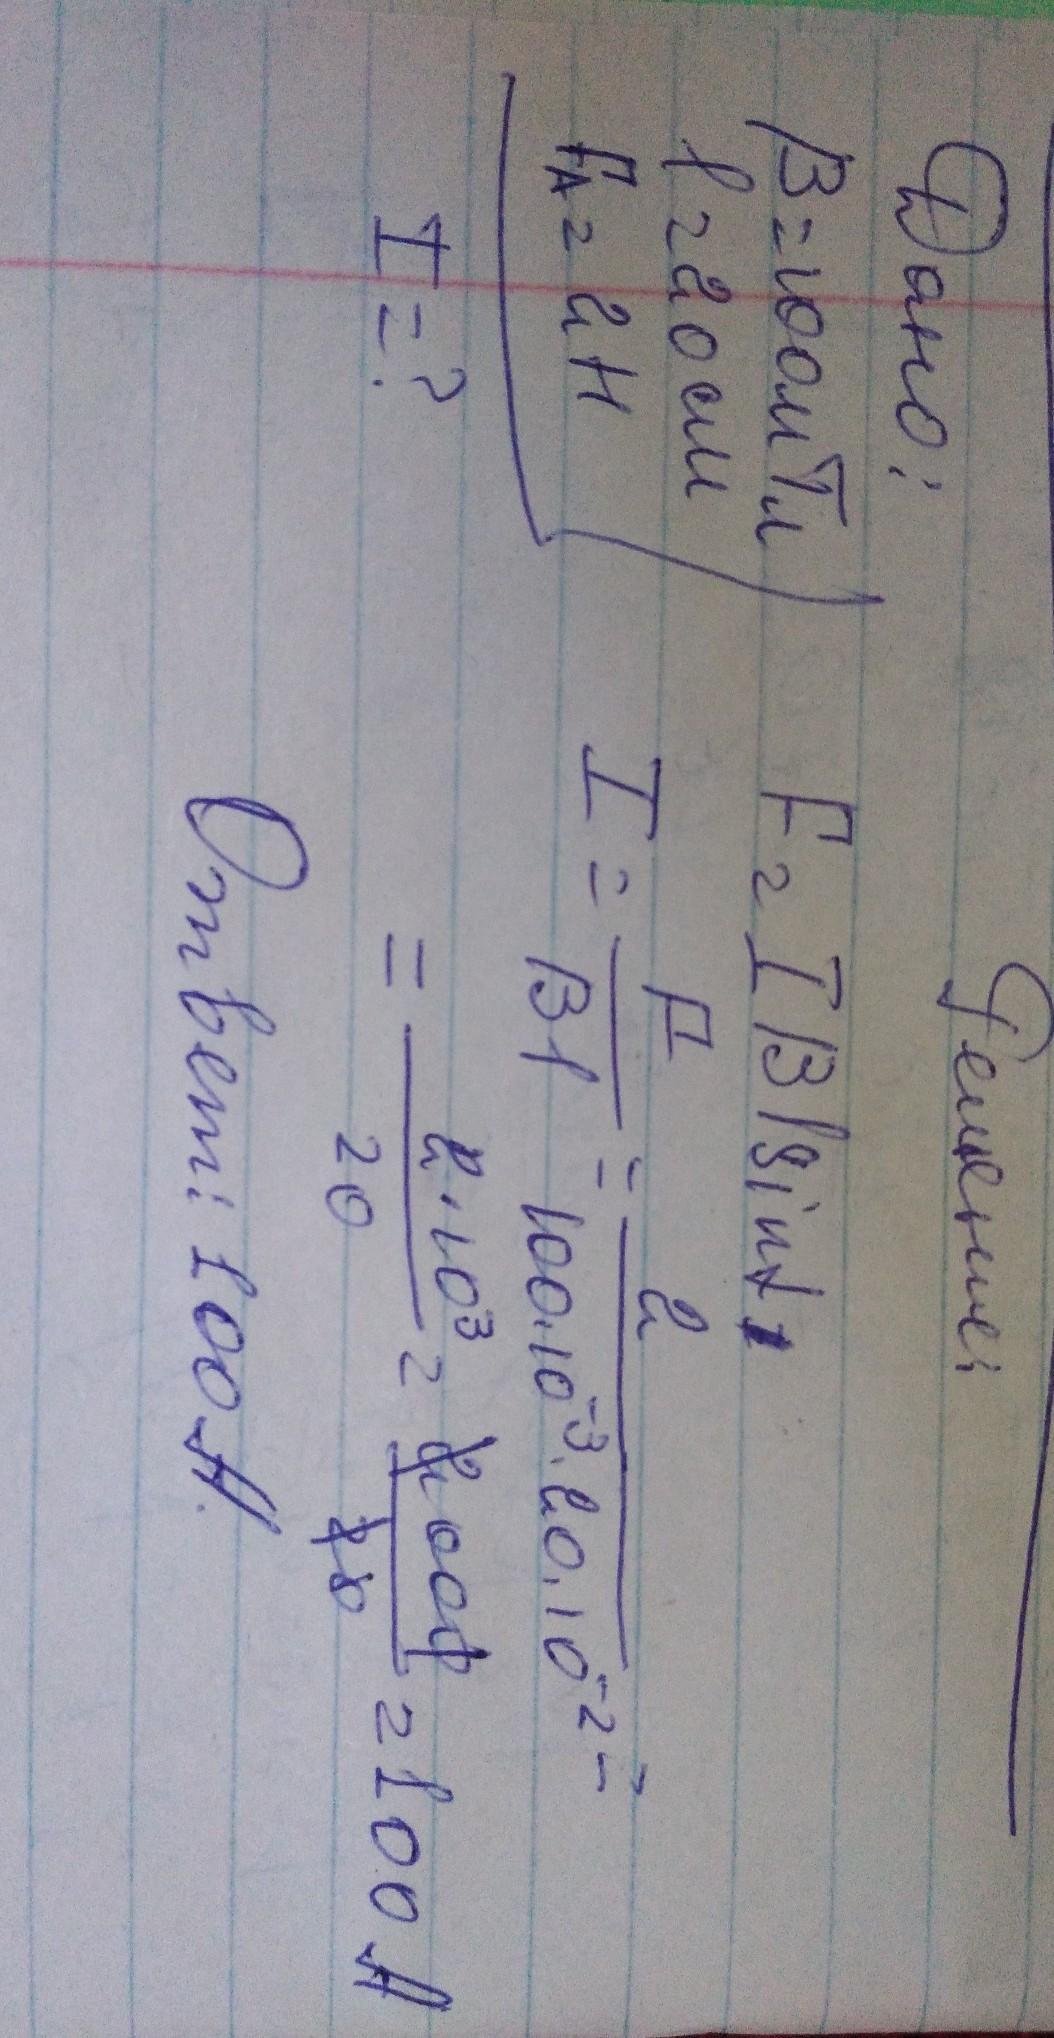 Дано:
B=100мТл
l=20см
FA=2Н
I=?
Решение:
F=IBlsinα
I=F/Bl=2/100·10⁻³·20·10⁻²=
=2·10³/20=2000/20=100A
Ответ: 100A.